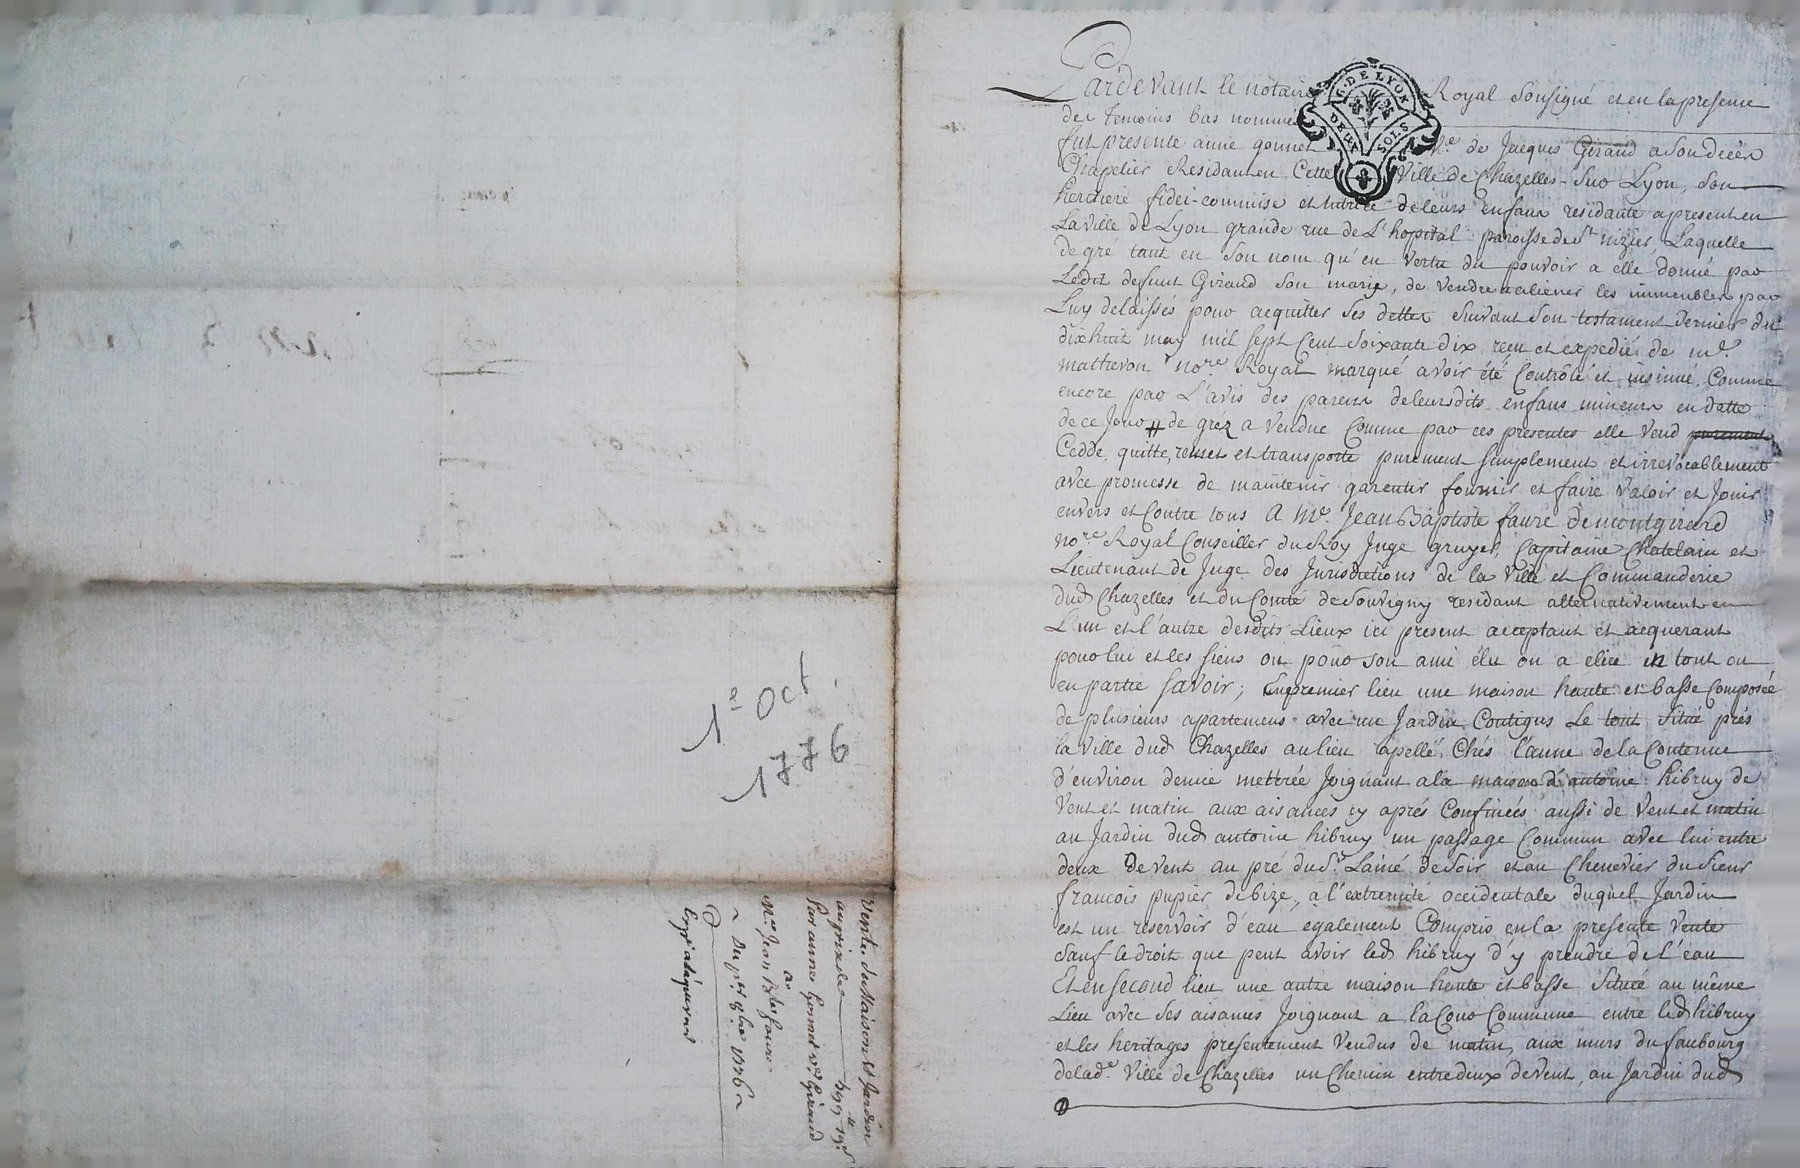 1e Oct
1776
Vente de Maison et Jardin
au prix de 1499 lt 19 s
par anne Gonnet ve Giraud
a
Me Jean Bte faure
Du pr 8bre 1776
Expt a laquereur
G. DE LYON
DEUX SOLS
Pardevant le notaire Royal sousigné et en la presence
des temoins bas nommés
fut presente anne gonnet ve de Jacques Giraud a son decés
Chapelier Residant en Cette Ville de Chazelles sur Lyon, son
heritiere fidei-commise et tutrice de leurs enfans residante apresent en
La ville de Lyon grande rue de L'hopital paroisse de st nizier, Laquelle
de gré tant en son nom qu'en vertu du pouvoir a elle donné par
Ledit defunt Giraud son marÿ, de vendre et aliener les immeubles par
Luy delaissés pour acquitter ses dettes suivant son testament dernier du
dixhuit may mil sept Cent soixante dix reçu et expedié de me
mathevon nore Royal marqué avoir été Contrôlé et insinué, Comme
encore par L'avis des parens de leursdits enfans mineurs en datte
de ce Jour # de gréz a vendue Comme par ces presentes elle vend purement
Cedde, quitte, remet et transporte purement simplement et irrevocablement
avec promesse de maintenir garentir fournir et faire valoir et Jouir
envers et Contre tous A Me Jean Baptiste faure de montgirard
nore Royal Conseiller du Roy Juge gruyer, Capitaine Chatelain et
Lieutenant de Juge des Jurisdictions de la Ville et Commanderie
dud Chazelles et du Comté de Souvigny residant alternativement en
L'un et l'autre desdits Lieux ici present acceptant et acquerant
pour lui et les siens ou pour son ami élu ou a elire en tout ou
en partie savoir; En premier lieu une maison haute et basse Composée
de plusieurs apartemens avec un Jardin Contigus Le tout situé prés
la ville dud Chazelles au lieu apellé Chés l'anne de la Contenue
d'environ demie metterée Joignant a la maison d'antoine hibruy de
Vent et matin aux aisances cy aprés Confinées aussi de Vent et matin
au Jardin dud antoine hibruy un passage Commun avec lui entre
deux De vent au pré du Sr Lainé de soir et au Chenevier du sieur
francois pupier de bize, a l'extremité occidentale duquel Jardin
est un reservoir d'eau egalement Compris en la presente Vente
sauf le droit que peut avoir led hibruy d'y prendre de l'eau
Et en second lieu une autre maison haute et basse située au même
Lieu avec ses aisances Joignant a la Cour Commune entre led hibruy
et les heritages presentement Vendus de matin, aux murs du faubourg
de lade Ville de Chazelles un Chemin entredeux de vent, au Jardin dud